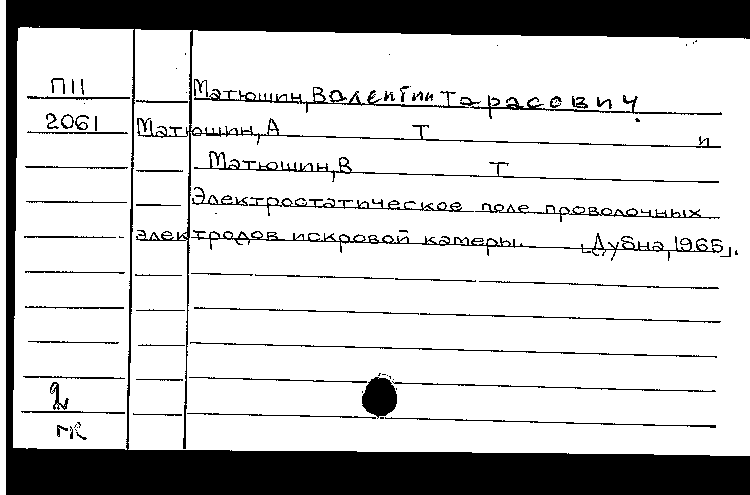 П11 Матюшин, Валентин Тарасович.
2061 Матюшин, А Т и
Матюшин, В Т
Электростатическое поле проволочных
электродов искровой камеры. [Дубна, 1965].
гк